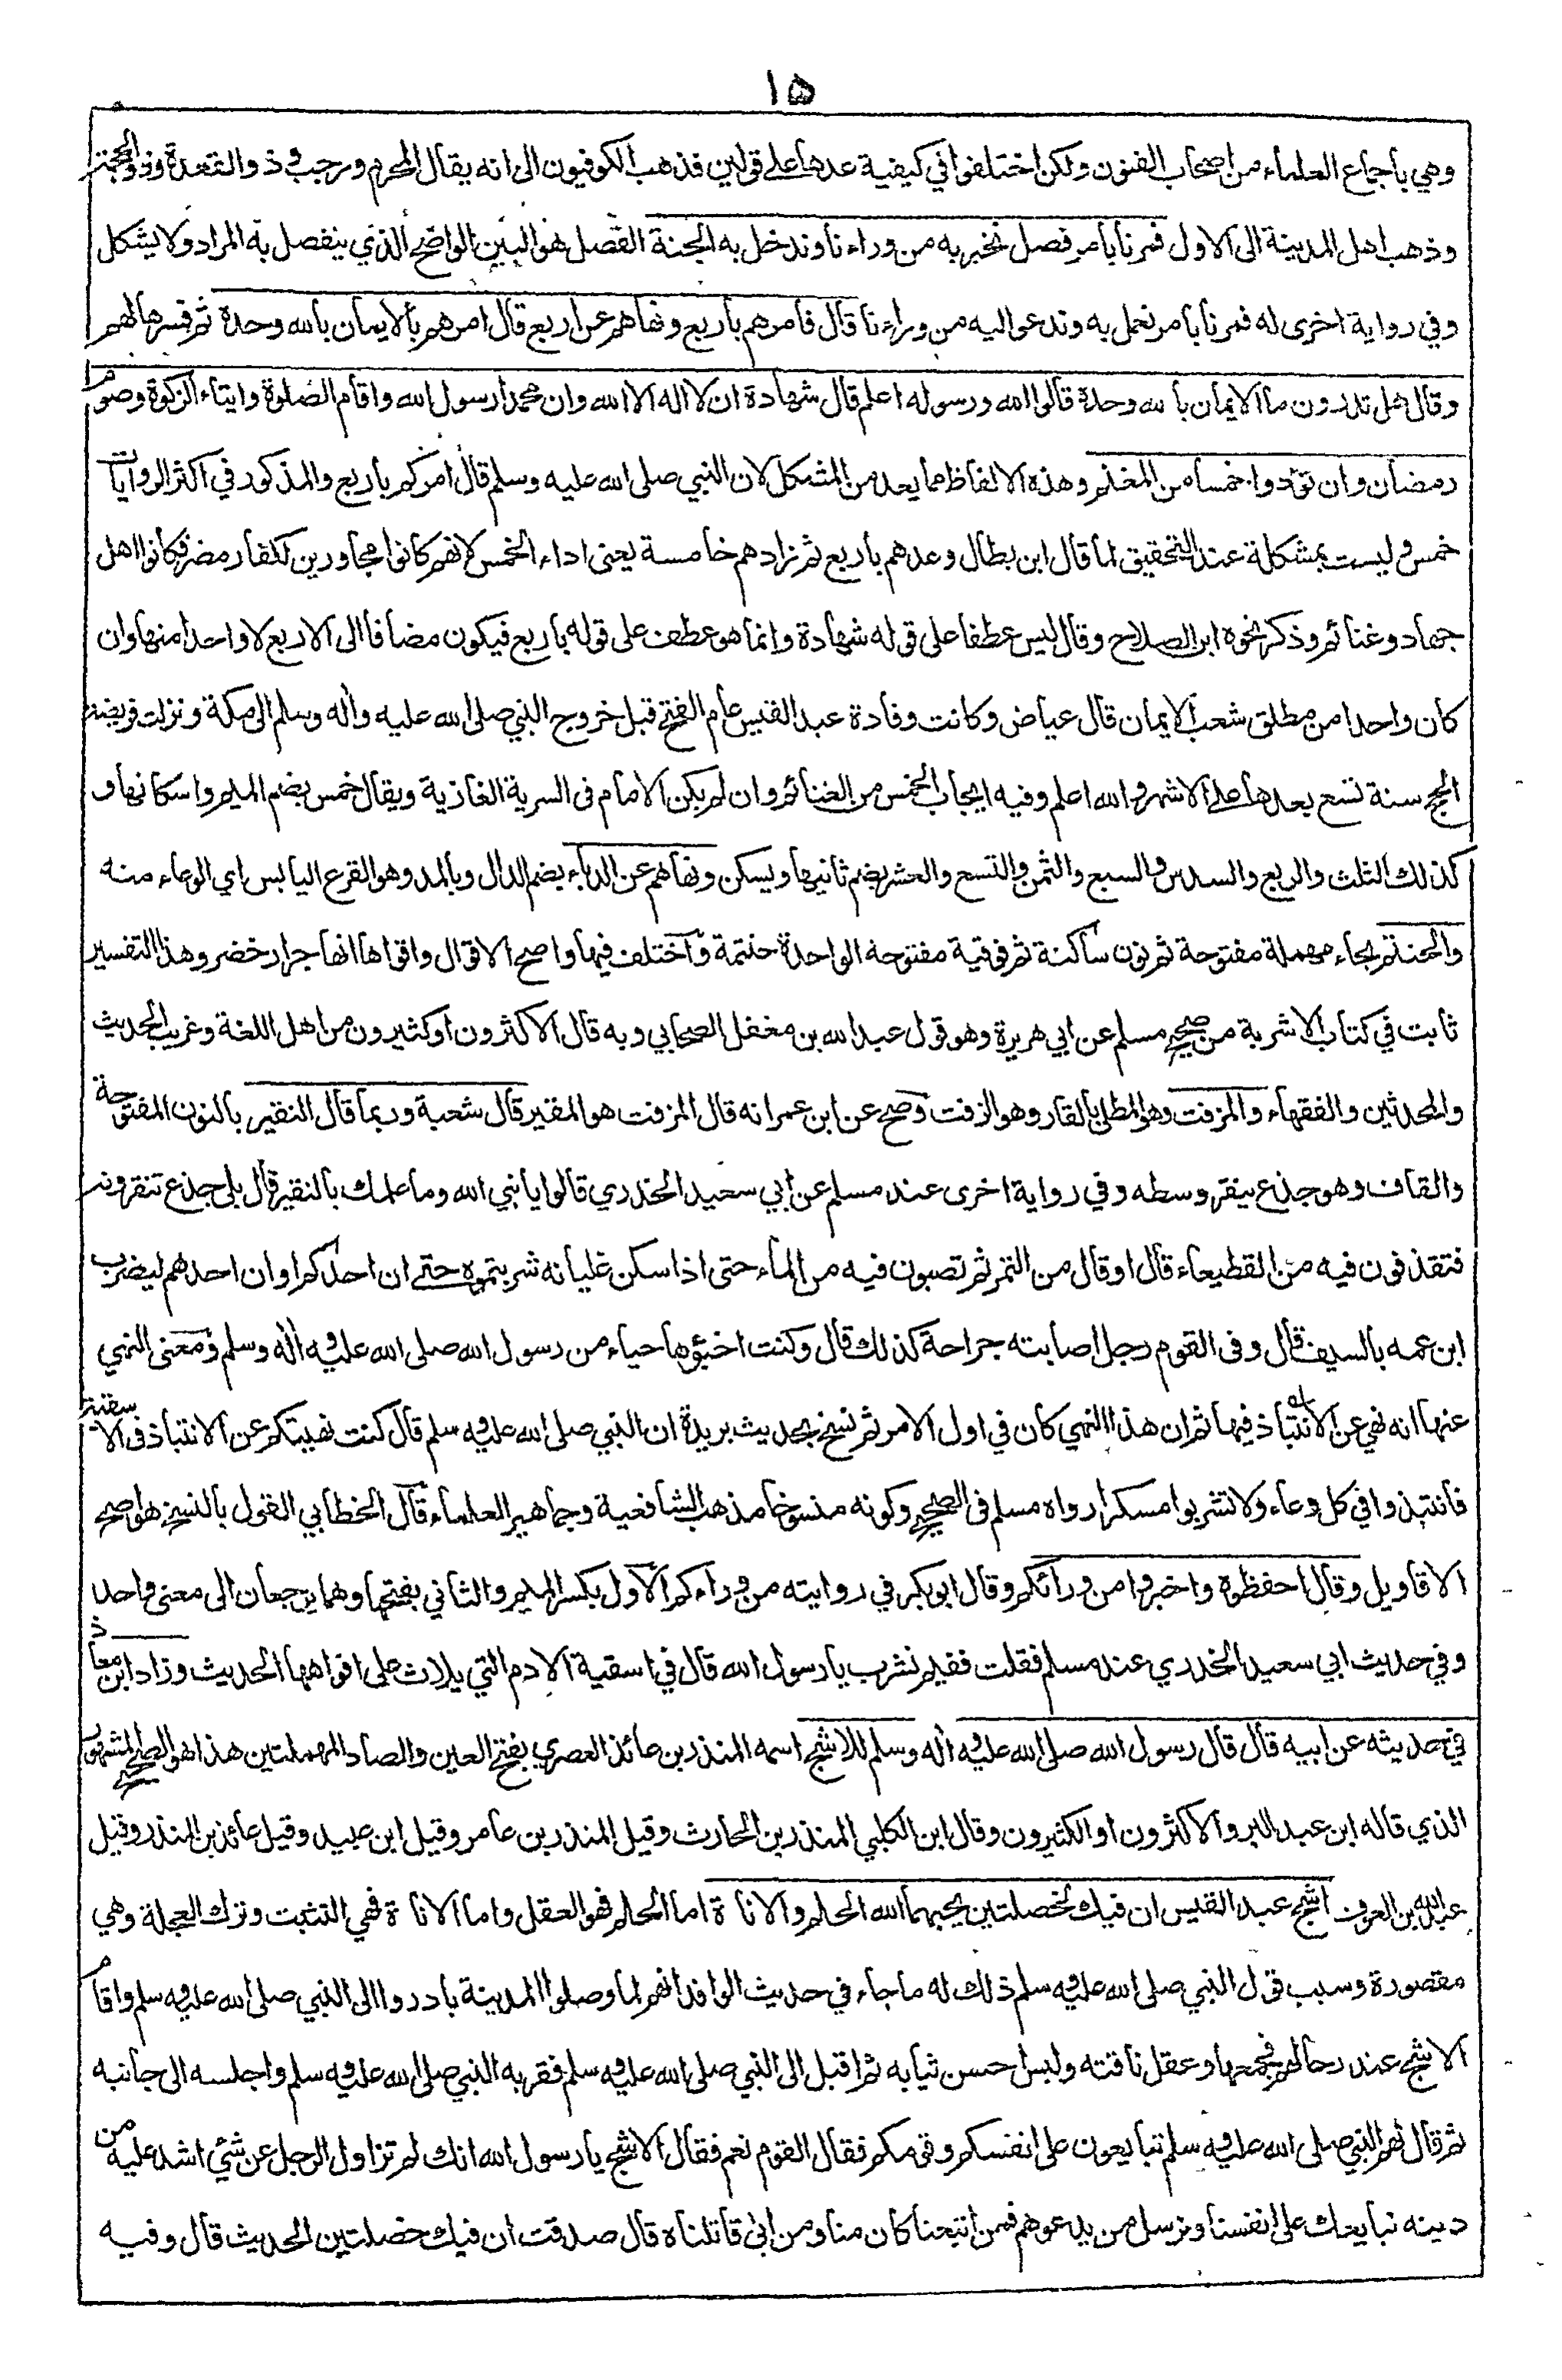 ١٥
وهي باجماع العلماء من اصحاب الفنون ولكن اختلفوا في كيفية عدها على قولين فذهب الكوفيون الى انه يقال المحرم ورجب وذو القعدة وذو الحجة
وذهب اهل المدينة الى الاول فمرنا بامر فصل نخبر به من وراءنا وندخل به الجنة الفصل هو البين الواضح الذي ينفصل به المراد ولا يشكل
وفي رواية اخرى له فمرنا بامر نعمل به وندعو اليه من وراءنا قال فامرهم باربع ونهاهم عن اربع قال امرهم بالايمان بالله وحدة ثم فسرها لهم
وقال هل تدرون ما الايمان بالله وحدة قالوا الله ورسوله اعلم قال شهادة ان لا اله الا الله وان محمدا رسول الله واقام الصلوة وايتاء الزكوة وصوم
رمضان وان تؤدوا خمسا من المغنم وهذه الالفاظ مما يعد من المشكل لان النبي صلى الله عليه وسلم قال امركم باربع والمذكور في اكثر الروايات
خمس وليست بمشكلة عند التحقيق لما قال ابن بطال وعدهم باربع ثم زادهم خامسة يعنى اداء الخمس لانهم كانوا مجاورين لكفار مضر فكانوا اهل
جهاد وغنائم وذكر نحوه ابن الصلاح وقال ليس عطفا على قوله شهادة وانما هو عطف على قوله باربع فيكون مضافا الى الاربع لا واحدا منها وان
كان واحدا من مطلق شعب الايمان قال عياض وكانت وفادة عبد القيس عام الفتح قبل خروج النبي صلى الله عليه واله وسلم الى مكة ونزلت فريضة
الحج سنة تسع بعدها على الاشهر والله اعلم وفيه ايجاب الخمس من الغنائم وان لم يكن الامام فى السرية الغازية ويقال خمس بضم الميم واسكانها و
كذلك الثلث والربع والسدس والسبع والثمن والتسع والعشر بضم ثانيها ويسكن ونهاهم عن الدباء بضم الدال وبالمد وهو القرع اليابس اي الوعاء منه
والحنتم بحاء مهملة مفتوحة ثم نون ساكنة ثم فوقية مفتوحه الواحدة حنتمة واختلف فيها واصح الاقوال واقواها انها جرار خضر وهذا التفسير
ثابت في كتاب الاشربة من صحيح مسلم عن ابي هريرة وهو قول عبد الله بن مغفل الصحابي وبه قال الاكثرون او كثيرون من اهل اللغة وغريب الحديث
والمحدثين والفقهاء والمزفت وهو المطلي بالقار وهو الزفت وصح عن ابن عمر انه قال المزفت هو المقير قال شعبة وربما قال النقير بالنون المفتوحة
والقاف وهو جذع ينقر وسطه وفي رواية اخرى عند مسلم عن ابي سعيد الخدري قالوا يا نبي الله وما علمك بالنقير قال بلى جذع تنقرونه
فتقذفون فيه من القطيعاء قال او قال من التمر ثم تصبون فيه من الماء حتى اذا سكن غليانه شربتموه حتى ان احدكم او ان احدهم ليضرب
ابن عمه بالسيف قال وفى القوم رجل اصابته جراحة كذلك قال وكنت اخبؤها حياء من رسول الله صلى الله عليه واله وسلم ومعنى النهي
عنها انه نهى عن الانتباذ فيها ثم ان هذا النهي كان في اول الامر ثم نسخ بحديث بريدة ان النبي صلى الله عليه وسلم قال كنت نهيتكم عن الانتباذ فى الاسقية
فانتبذوا في كل وعاء ولا تشربوا مسكرا رواه مسلم فى الصحيح وكونه منسوخا مذهب الشافعية وجماهير العلماء قال الخطابي القول بالنسخ هو اصح
الاقاويل وقال احفظوه واخبروا من ورائكم وقال ابو بكر في روايته من وراءكم الاول بكسر الميم والثاني بفتحها وهما يرجعان الى معنى واحد
وفي حديث ابي سعيد الخدري عند مسلم فقلت ففيم نشرب يا رسول الله قال في اسقية الادم التي يلاث على افواهها الحديث وزاد ابن معاذ
في حديثه عن ابيه قال قال رسول الله صلى الله عليه واله وسلم للاشج اسمه المنذر بن عائذ العصري بفتح العين والصاد المهملتين هذا هو الصحيح المشهور
الذي قاله ابن عبد البر والاكثرون او الكثيرون وقال ابن الكلبي المنذر بن الحارث وقيل المنذر بن عامر وقيل ابن عبيد وقيل عائذ بن المنذر وقيل
عبد الله بن العوف اشج عبد القيس ان فيك لخصلتين يحبهما الله الحلم والاناة اما الحلم فهو العقل واما الاناة فهي التثبت وترك العجلة وهي
مقصورة وسبب قول النبي صلى الله عليه وسلم ذلك له ما جاء في حديث الوافد انهم لما وصلوا المدينة بادروا الى النبي صلى الله عليه وسلم واقام
الاشج عند رحالهم فجمعها وعقل ناقته ولبس احسن ثيابه ثم اقبل الى النبي صلى الله عليه وسلم فقربه النبي صلى الله عليه وسلم واجلسه الى جانبه
ثم قال لهم النبي صلى الله عليه وسلم تبايعون على انفسكم وقومكم فقال القوم نعم فقال الاشج يا رسول الله انك لم تزاول الرجل عن شئ اشد عليه من
دينه نبايعك على انفسنا ونرسل من يدعوهم فمن اتبعنا كان منا ومن ابى قاتلناه قال صدقت ان فيك خصلتين الحديث قال وفيه